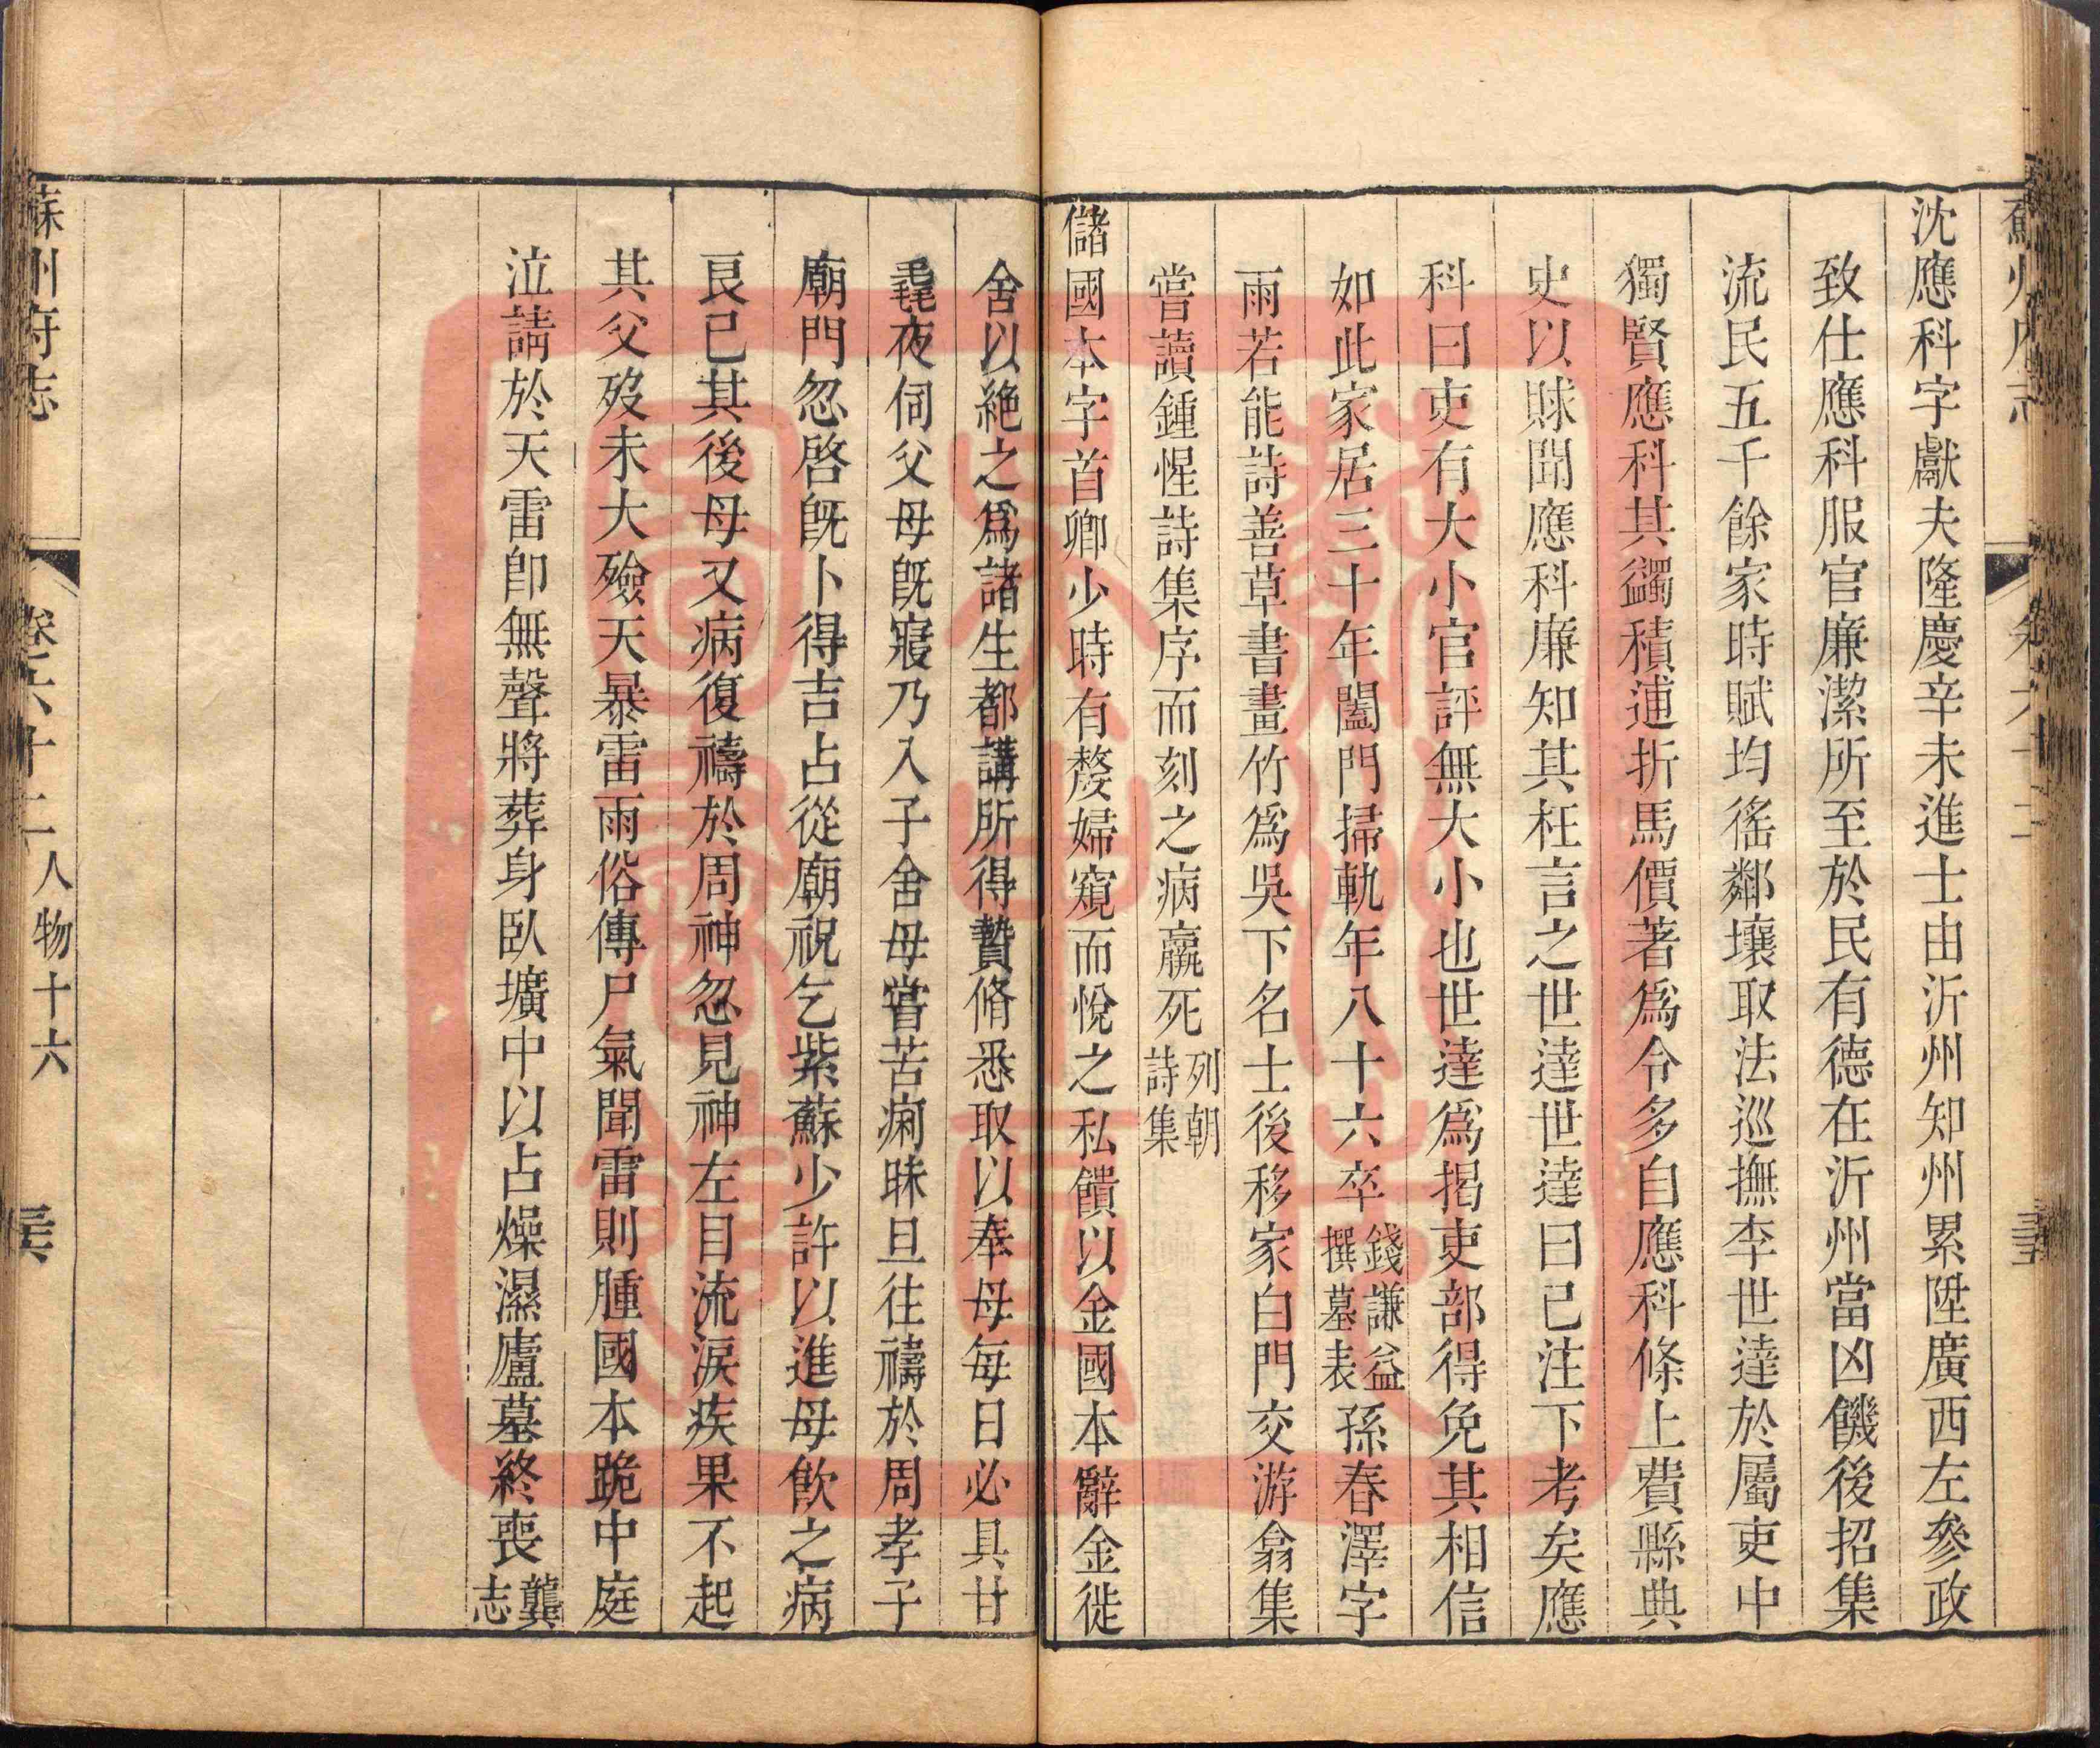 沈應科字獻夫隆慶辛未進士由沂州知州累陞廣西左參政
致仕應科服官廉潔所至於民有德在沂州當凶饑後招集
流民五千餘家時賦均徭鄰壤取法巡撫李世達於屬吏中
獨賢應科其蠲積逋折馬價著爲令多自應科條上費縣典
史以賕聞應科廉知其枉言之世達世達曰已注下考矣應
科曰吏有大小官評無大小也世達爲揭吏部得免其相信
如此家居三十年闔門掃軌年八十六卒錢謙益撰墓表孫春澤字
雨若能詩善草書畫竹爲吳下名士後移家白門交游翕集
嘗讀鍾惺詩集序而刻之病羸死列朝詩集
儲國本字首卿少時有嫠婦窺而悅之私饋以金國本辭金徙
舍以絶之爲諸生都講所得贄脩悉取以奉母每日必具甘
毳夜伺父母旣寢乃入子舍母嘗苦痢昧旦往禱於周孝子
廟門忽啓旣卜得吉占從廟祝乞紫蘇少許以進母飮之病
良已其後母又病復禱於周神忽見神左目流淚疾果不起
其父歿未大殮天暴雷雨俗傳尸氣聞雷則腫國本跪中庭
泣請於天雷卽無聲將葬身臥壙中以占燥濕廬墓終喪龔志
蘇州府志
卷六十二 人物十六